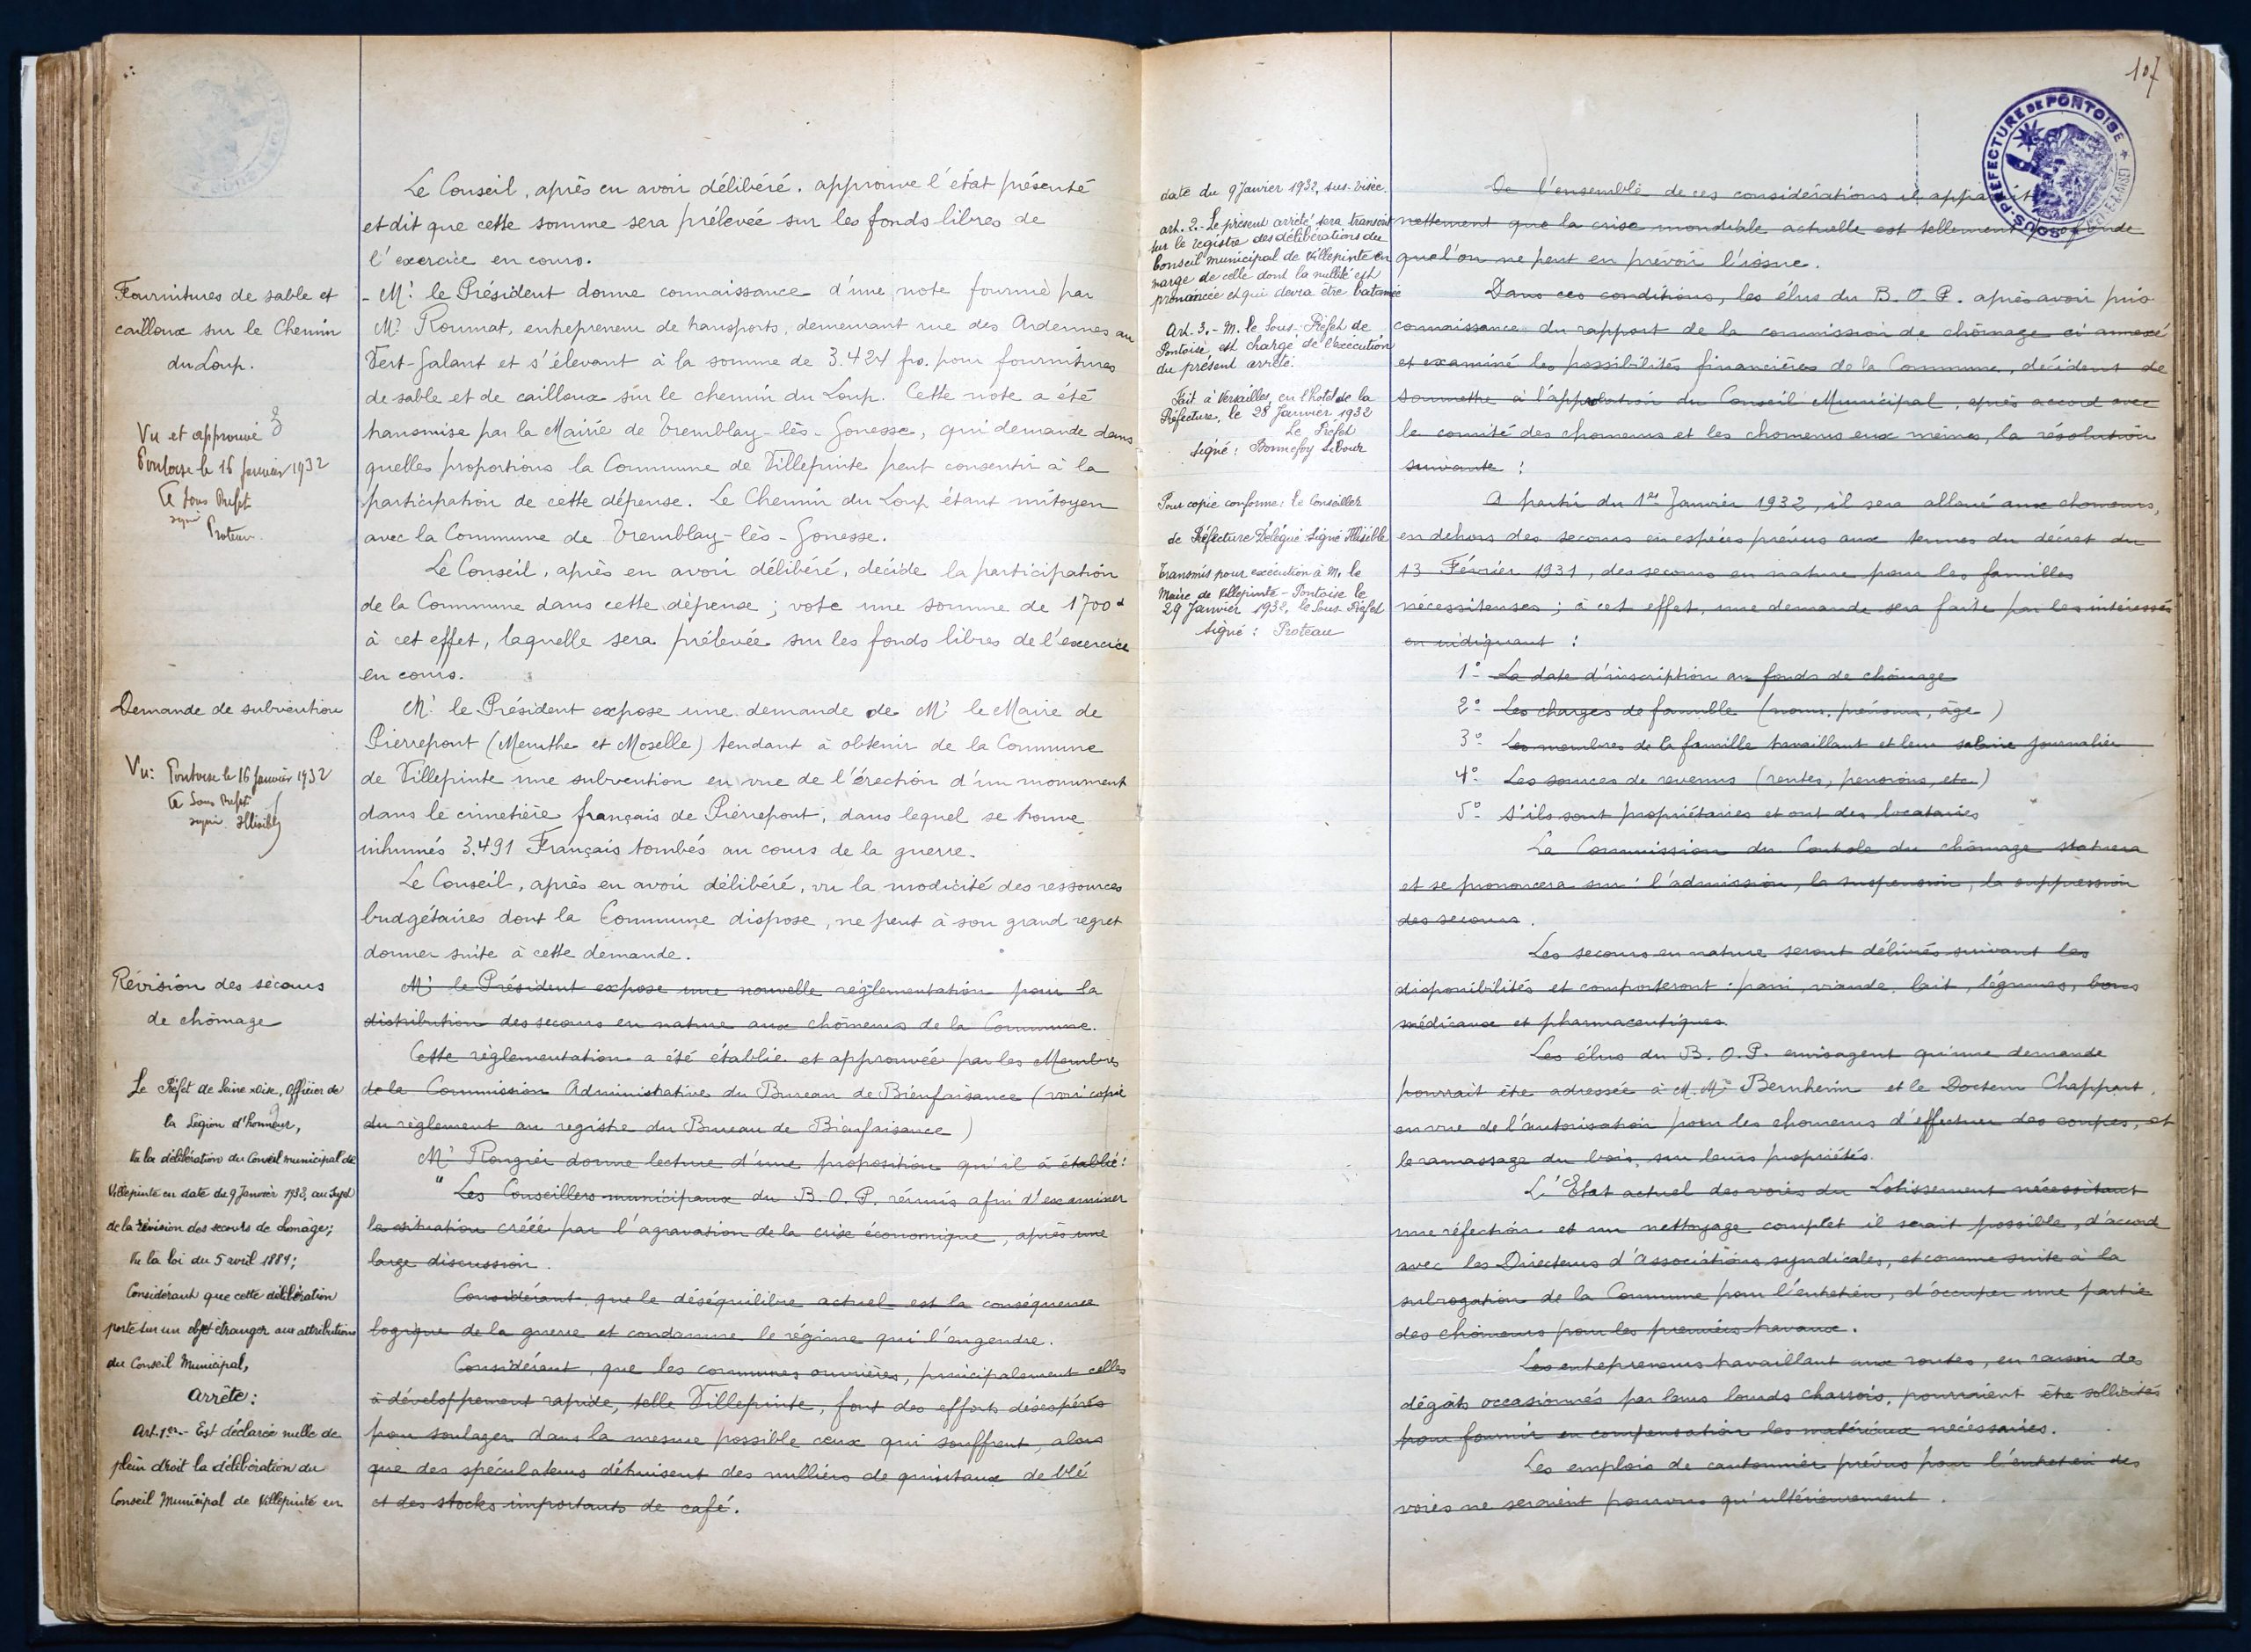 Le Conseil, après en avoir délibéré, approuve l'état présenté
et dit que cette somme sera prélevée sur les fonds libres de
l'exercice en cours.
Fournitures de sable et
cailloux sur le Chemin
du Loup.
Vu et approuvé
Pontoise le 16 janvier 1932
Le Sous Préfet
signé
Proteau
- Mr le Président donne connaissance d'une note fournie par
Mr Roumat, entrepreneur de transports, demeurant rue des Ardennes au
Vert-Galant et s'élevant à la somme de 3.424 frs. pour fournitures
de sable et de cailloux sur le chemin du Loup. Cette note a été
transmise par la Mairie de Tremblay-lès-Gonesse, qui demande dans
quelles proportions la Commune de Villepinte peut consentir à la
participation de cette dépense. Le Chemin du Loup étant mitoyen
avec la Commune de Tremblay-lès-Gonesse.
Le Conseil, après en avoir délibéré, décide la participation
de la Commune dans cette dépense ; vote une somme de 1700
à cet effet, laquelle sera prélevée sur les fonds libres de l'exercice
en cours.
Demande de subvention
Vu: Pontoise le 16 janvier 1932
Le Sous Préfet
signé Illisible
Mr le Président expose une demande de Mr le Maire de
Pierrepont (Meurthe et Moselle) tendant à obtenir de la Commune
de Villepinte une subvention en vue de l'érection d'un monument
dans le cimetière français de Pierrepont, dans lequel se trouve
inhumés 3.491 Français tombés au cours de la guerre.
Le Conseil, après en avoir délibéré, vu la modicité des ressources
budgétaires dont la Commune dispose, ne peut à son grand regret
donner suite à cette demande.
Révision des secours
de chômage
Le Préfet de Seine et Oise, Officier de
la Légion d'honneur,
Vu la délibération du Conseil municipal de
Villepinte en date du 9 Janvier 1932, au sujet
de la révision des secours de chomage;
Vu la loi du 5 avril 1884;
Considérant que cette délibération
porte sur un objet étranger aux attributions
du Conseil Municipal,
Arrête:
Art. 1er.- Est déclarée nulle de
plein droit la délibération du
Conseil Municipal de Villepinte en
Mr le Président expose une nouvelle réglementation pour la
distribution des secours en nature aux chômeurs de la Commune.
Cette règlementation a été établie et approuvée par les Membres
de la Commission Administrative du Bureau de Bienfaisance (voir copie
du règlement au registre du Bureau de Bienfaisance)
Mr Rougier donne lecture d'une proposition qu'il a établie:
" Les Conseillers municipaux du B.O.P. réunis afin d'examiner
la situation créée par l'agravation de la crise économique, après une
large discussion.
Considérant, que le déséquilibre actuel est la conséquence
logique de la guerre et condamne le régime qui l'engendre.
Considérant, que les communes ouvrières, principalement celles
à développement rapide, telle Villepinte, font des efforts désespérés
pour soulager dans la mesure possible ceux qui souffrent, alors
que des spéculateurs détruisent des milliers de quintaux de blé
et des stocks importants de café.
107
SOUS-PRÉFECTURE DE PONTOISE
date du 9 Janvier 1932, sus-visée.
art. 2.- Le présent arrêté sera transcrit
sur le registre des délibérations du
Conseil municipal de Villepinte en
marge de celle dont la nullité est
prononcée et qui devra être batonnée
Art. 3.- M. le Sous-Préfet de
Pontoise, est chargé de l'exécution
du présent arrêté.
Fait à Versailles, en l'hotel de la
Préfecture, le 28 Janvier 1932
Le Préfet
Signé: Bonnefoy Sibour
Pour copie conforme: Le Conseiller
de Préfecture Délégué Signé Illisible
Transmis pour exécution à M. le
Maire de Villepinte - Pontoise le
29 Janvier 1932, le Sous-Préfet
Signé: Proteau
De l'ensemble de ces considérations il apparait
nettement que la crise mondiale actuelle est tellement profonde
que l'on ne peut en prévoir l'issue.
Dans ces conditions, les élus du B.O.P. après avoir pris
connaissance du rapport de la commission de chômage ci annexé
et examiné les possibilités financières de la Commune, décident de
soumettre à l'approbation du Conseil Municipal, après accord avec
le comité des chomeurs et les chomeurs eux mêmes, la résolution
suivante :
A partir du 1er Janvier 1932, il sera alloué aux chomeurs,
en dehors des secours en espèces prévus aux termes du décret du
13 Février 1931, des secours en nature pour les familles
nécessiteuses ; à cet effet, une demande sera faite par les intéressés
en indiquant :
1°- La date d'inscription au fonds de chômage
2°- Les charges de famille (noms, prénoms, âge)
3°- Les membres de la famille travaillant et leur salaire journalier
4°- Les sources de revenus (rentes, pensions, etc)
5°- S'ils sont propriétaires et ont des locataires
La Commission du Controle du chômage statuera
et se prononcera sur : l'admission, la suspension, la suppression
des secours.
Les secours en nature seront délivrés suivant les
disponibilités et comporteront : pain, viande, lait, légumes, bons
médicaux et pharmaceutiques.
Les élus du B.O.P. envisagent qu'une demande
pourrait être adressée à M. Mme Bernheim et le Docteur Chappart,
en vue de l'autorisation pour les chomeurs d'effectuer des coupes, et
le ramassage du bois, sur leurs propriétés.
L'Etat actuel des voies du Lotissement nécessitant
une réfection et un nettoyage complet il serait possible, d'accord
avec les Directeurs d'Associations syndicales, et comme suite à la
subrogation de la Commune pour l'entretien, d'occuper une partie
des chômeurs pour les premiers travaux.
Les entrepreneurs travaillant aux routes, en raison des
dégâts occasionnés par leurs lourds charrois, pourraient être sollicités
pour fournir en compensation les matériaux nécessaires.
Les emplois de cantonnier prévus pour l'entretien des
voies ne seraient pourvus qu'ultérieurement.